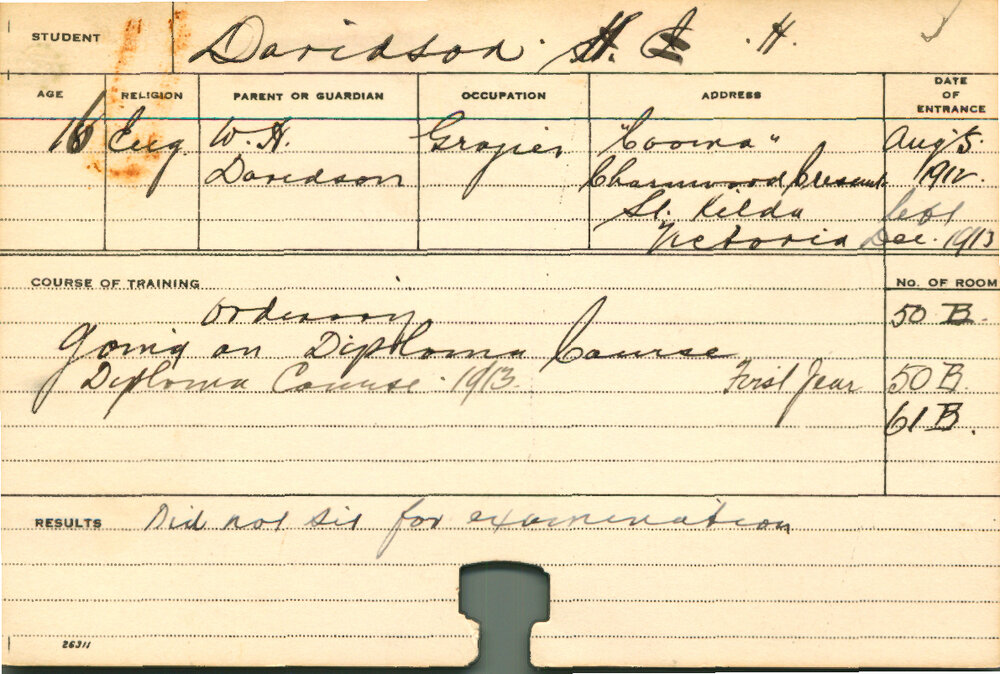 STUDENT Davidson. H.
AGE RELIGION PARENT OR GUARDIAN OCCUPATION ADDRESS DATE OF ENTRANCE
16 Eng. W. H. Grazier "Cooma" Aug 5.
Davidson Charnwood Crescent 1912.
St. Kilda Left
Victoria Dec. 1913
COURSE OF TRAINING No. OF ROOM
Ordinary 50 B.
going on Diploma Course
Diploma Course. 1913. First Year 50 B.
61 B.
RESULTS Did not sit for examination
26311